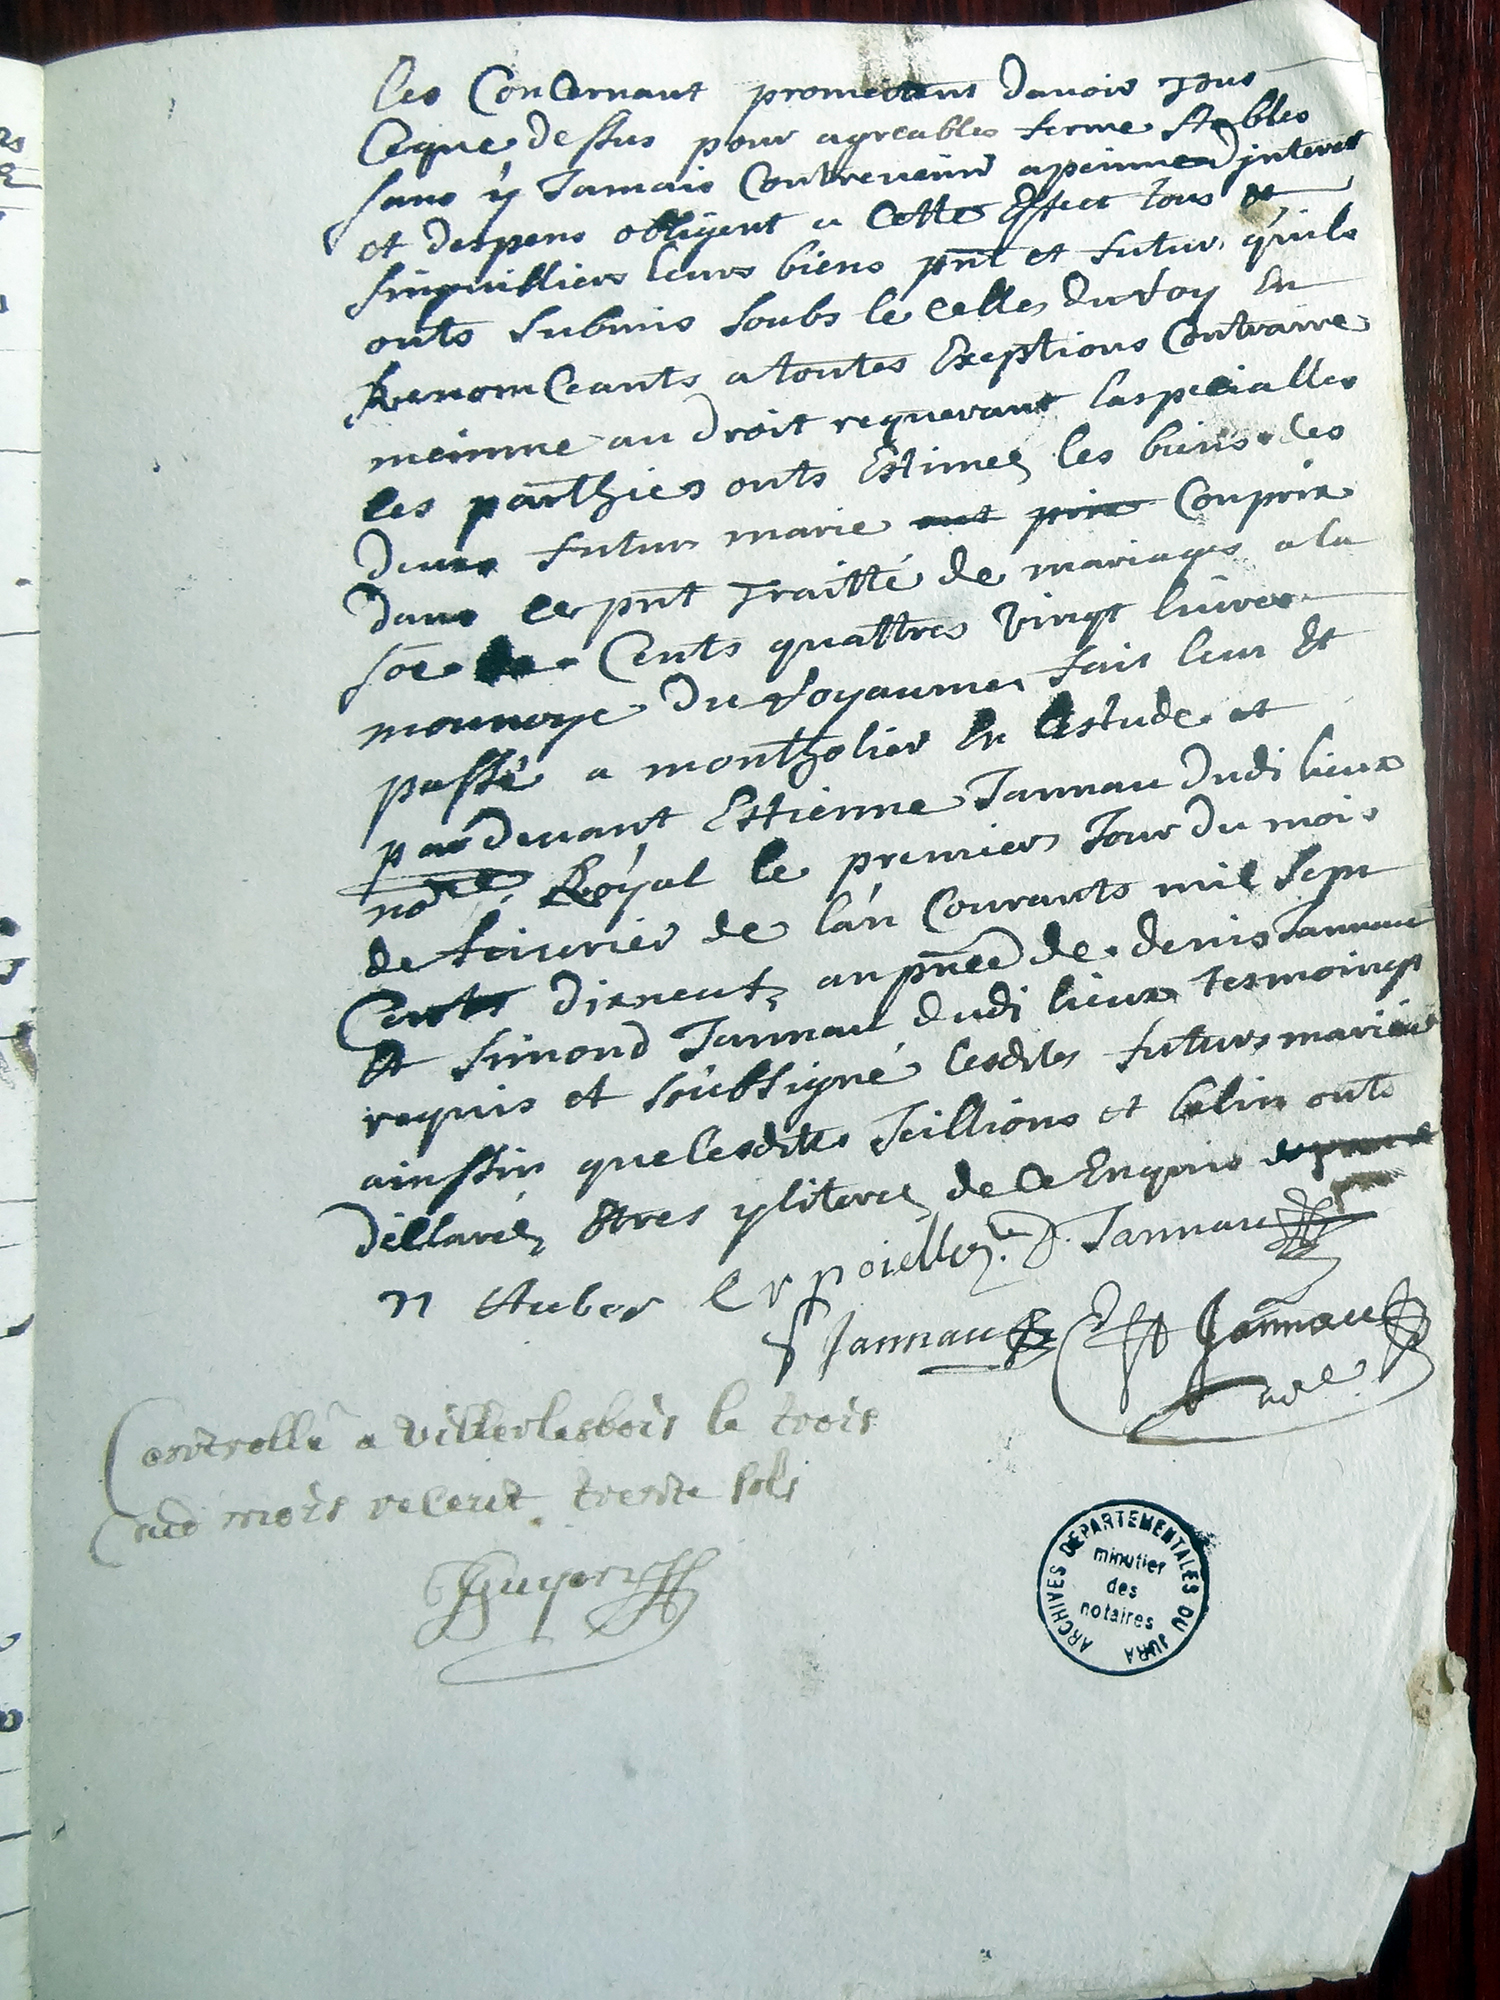 les Concernant promettent davoir tous
Ceque dessus pour agreables ferme stables
sans y Jamais Contrevenir apeinne d'jnterest
et despens obligent a Cette Effect tous et
singuilliers leurs biens pnt et futur qu'ils
onts submis soubs le celles du Roy En
Renomceants a toutes Exeptions Contraire
meimme au droit requerant laspecialles
les parthies onts Estimez les biens des
deux futur marie Conprix
dans ce pnt traitté de mariages a la
soe Cents quattres vingt liuvres
monnoye du Royaume fait leut Et
passé a montholier En lestude et
pardevant Estienne Jannau dudi lieux
nore Royal le premier Jour du mois
de feivrier de lan Courants mil sept
Cents dixneufz an pnce de denis Jannau
Et simond Jannau dudi lieux tesmoings
requis et soubsigné lesdits futurs mariez
ainssin que lesdits Teillions et belin onts
déllarez Etres yliterez de ce Enquis
n Aubor D. Jannau
S Jannau E Jannau
nore
Controllé a villerlesbois le trois
dud mois receut trente sols
Guyon
ARCHIVES DEPARTEMENTALES DU JURA
minutier
des
notaires